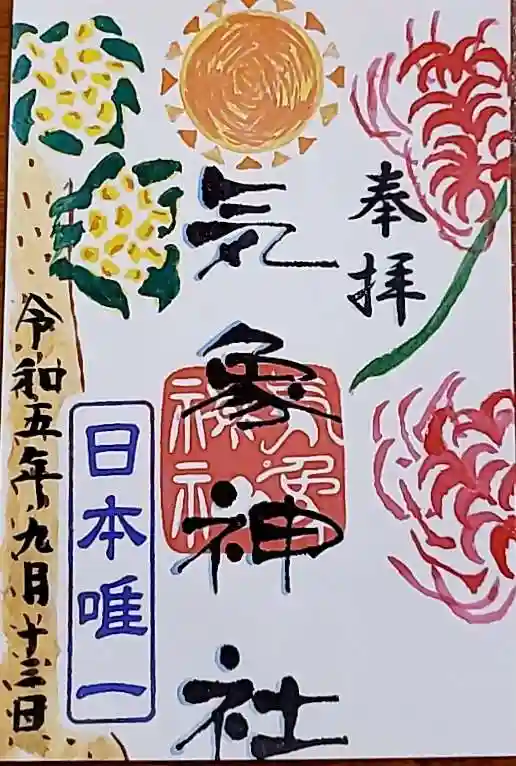 奉拝
気象神社
気象神社
日本唯一
令和五年九月十三日